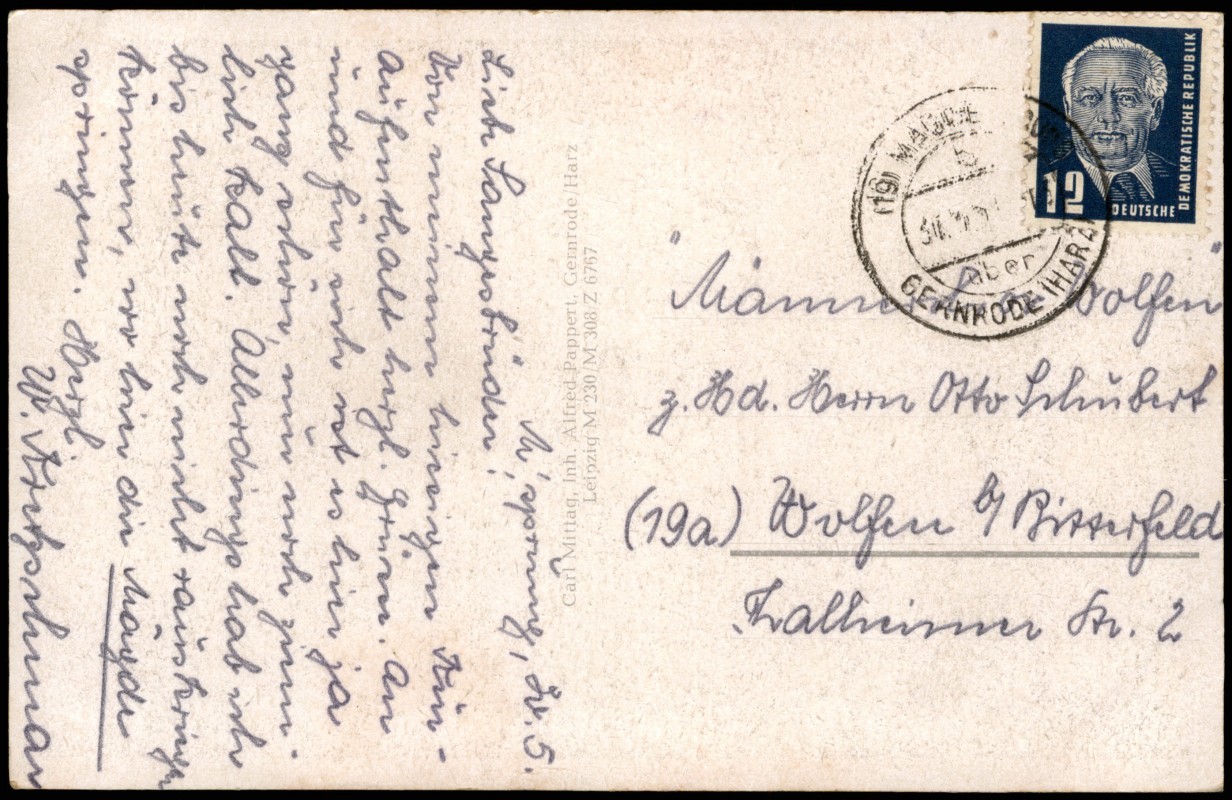 M'sprung, 30.5.
Liebe Sangesbrüder!
Von meinem hiesigen Kur-
aufenthalt herzl. Grüsse. An
und für sich ist es hier ja
ganz schön, nur noch ziem-
lich kalt. Allerdings hab ich
bis heute noch nicht rauskriegen
können, wo hier die Mägde
springen. Herzl.
W.
Carl Mittag, Inh. Alfred Pappert, Gernrode/Harz
Leipzig M 230/M 308 Z 6767
12
DEUTSCHE
DEMOKRATISCHE REPUBLIK
(19)
über
GERNRODE (HARZ)
"Männerchor Wolfen"
z. Hd. Herrn Otto Schubert
(19a) Wolfen b/ Bitterfeld
Thalheimer Str. 2